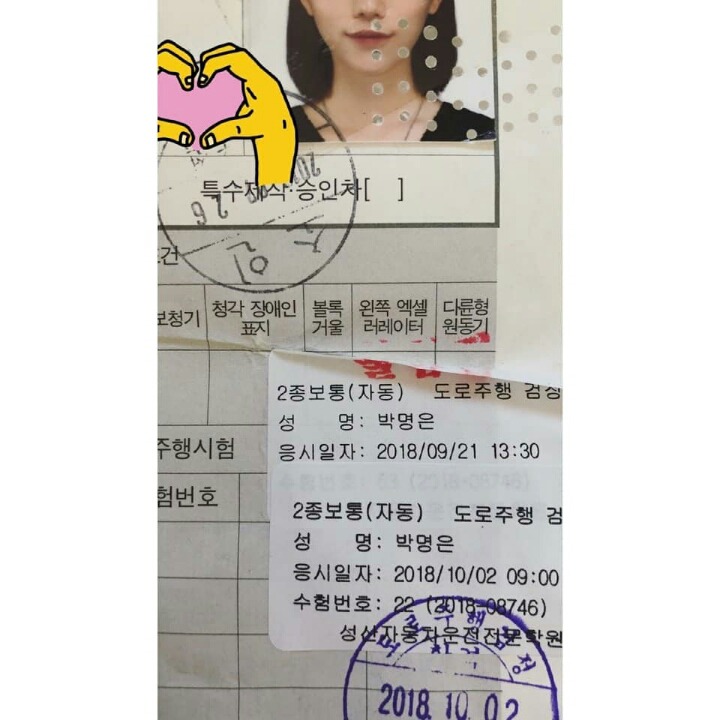 특수제작·승인차[ ]
보청기
청각 장애인 표지
볼록 거울
왼쪽 엑셀러레이터
다륜형 원동기
2종보통(자동) 도로주행
성 명: 박명은
응시일자: 2018/09/21 13:30
주행시험
험번호
2종보통(자동) 도로주행
성 명: 박명은
응시일자: 2018/10/02 09:00
수험번호: 22 (2018-08746)
성산자동차운전전문학원
2018. 10. 02